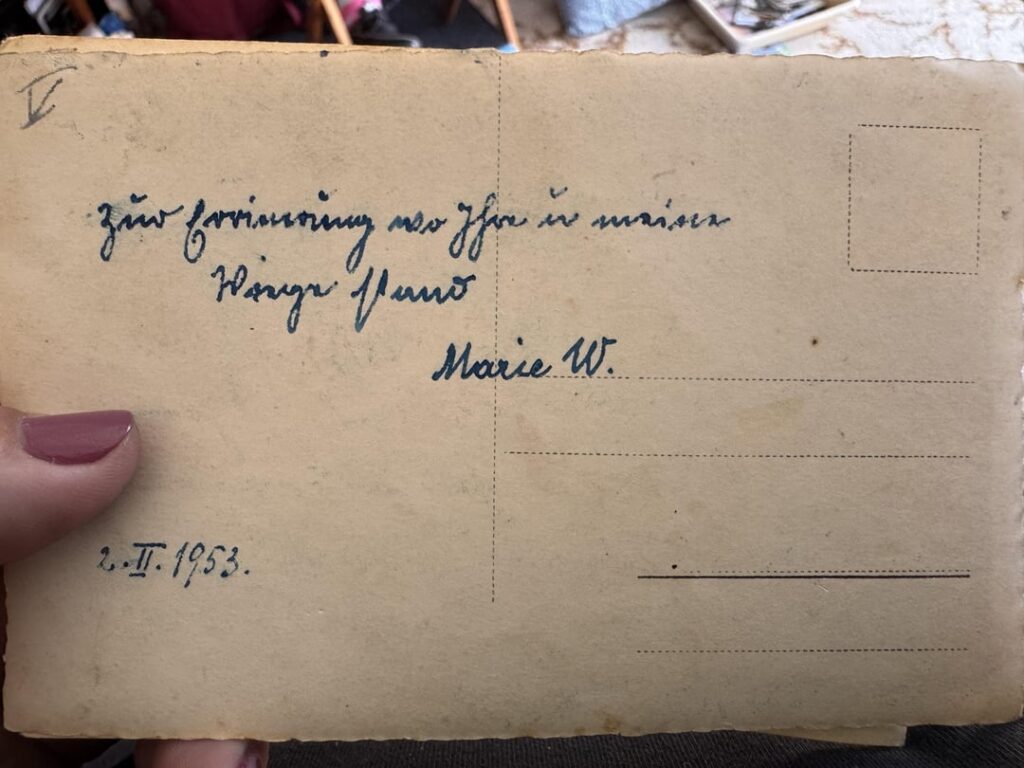 V
Zur Erinnerung wo Ihre u meine
Wiege stand
Marie W.
2.II.1953.